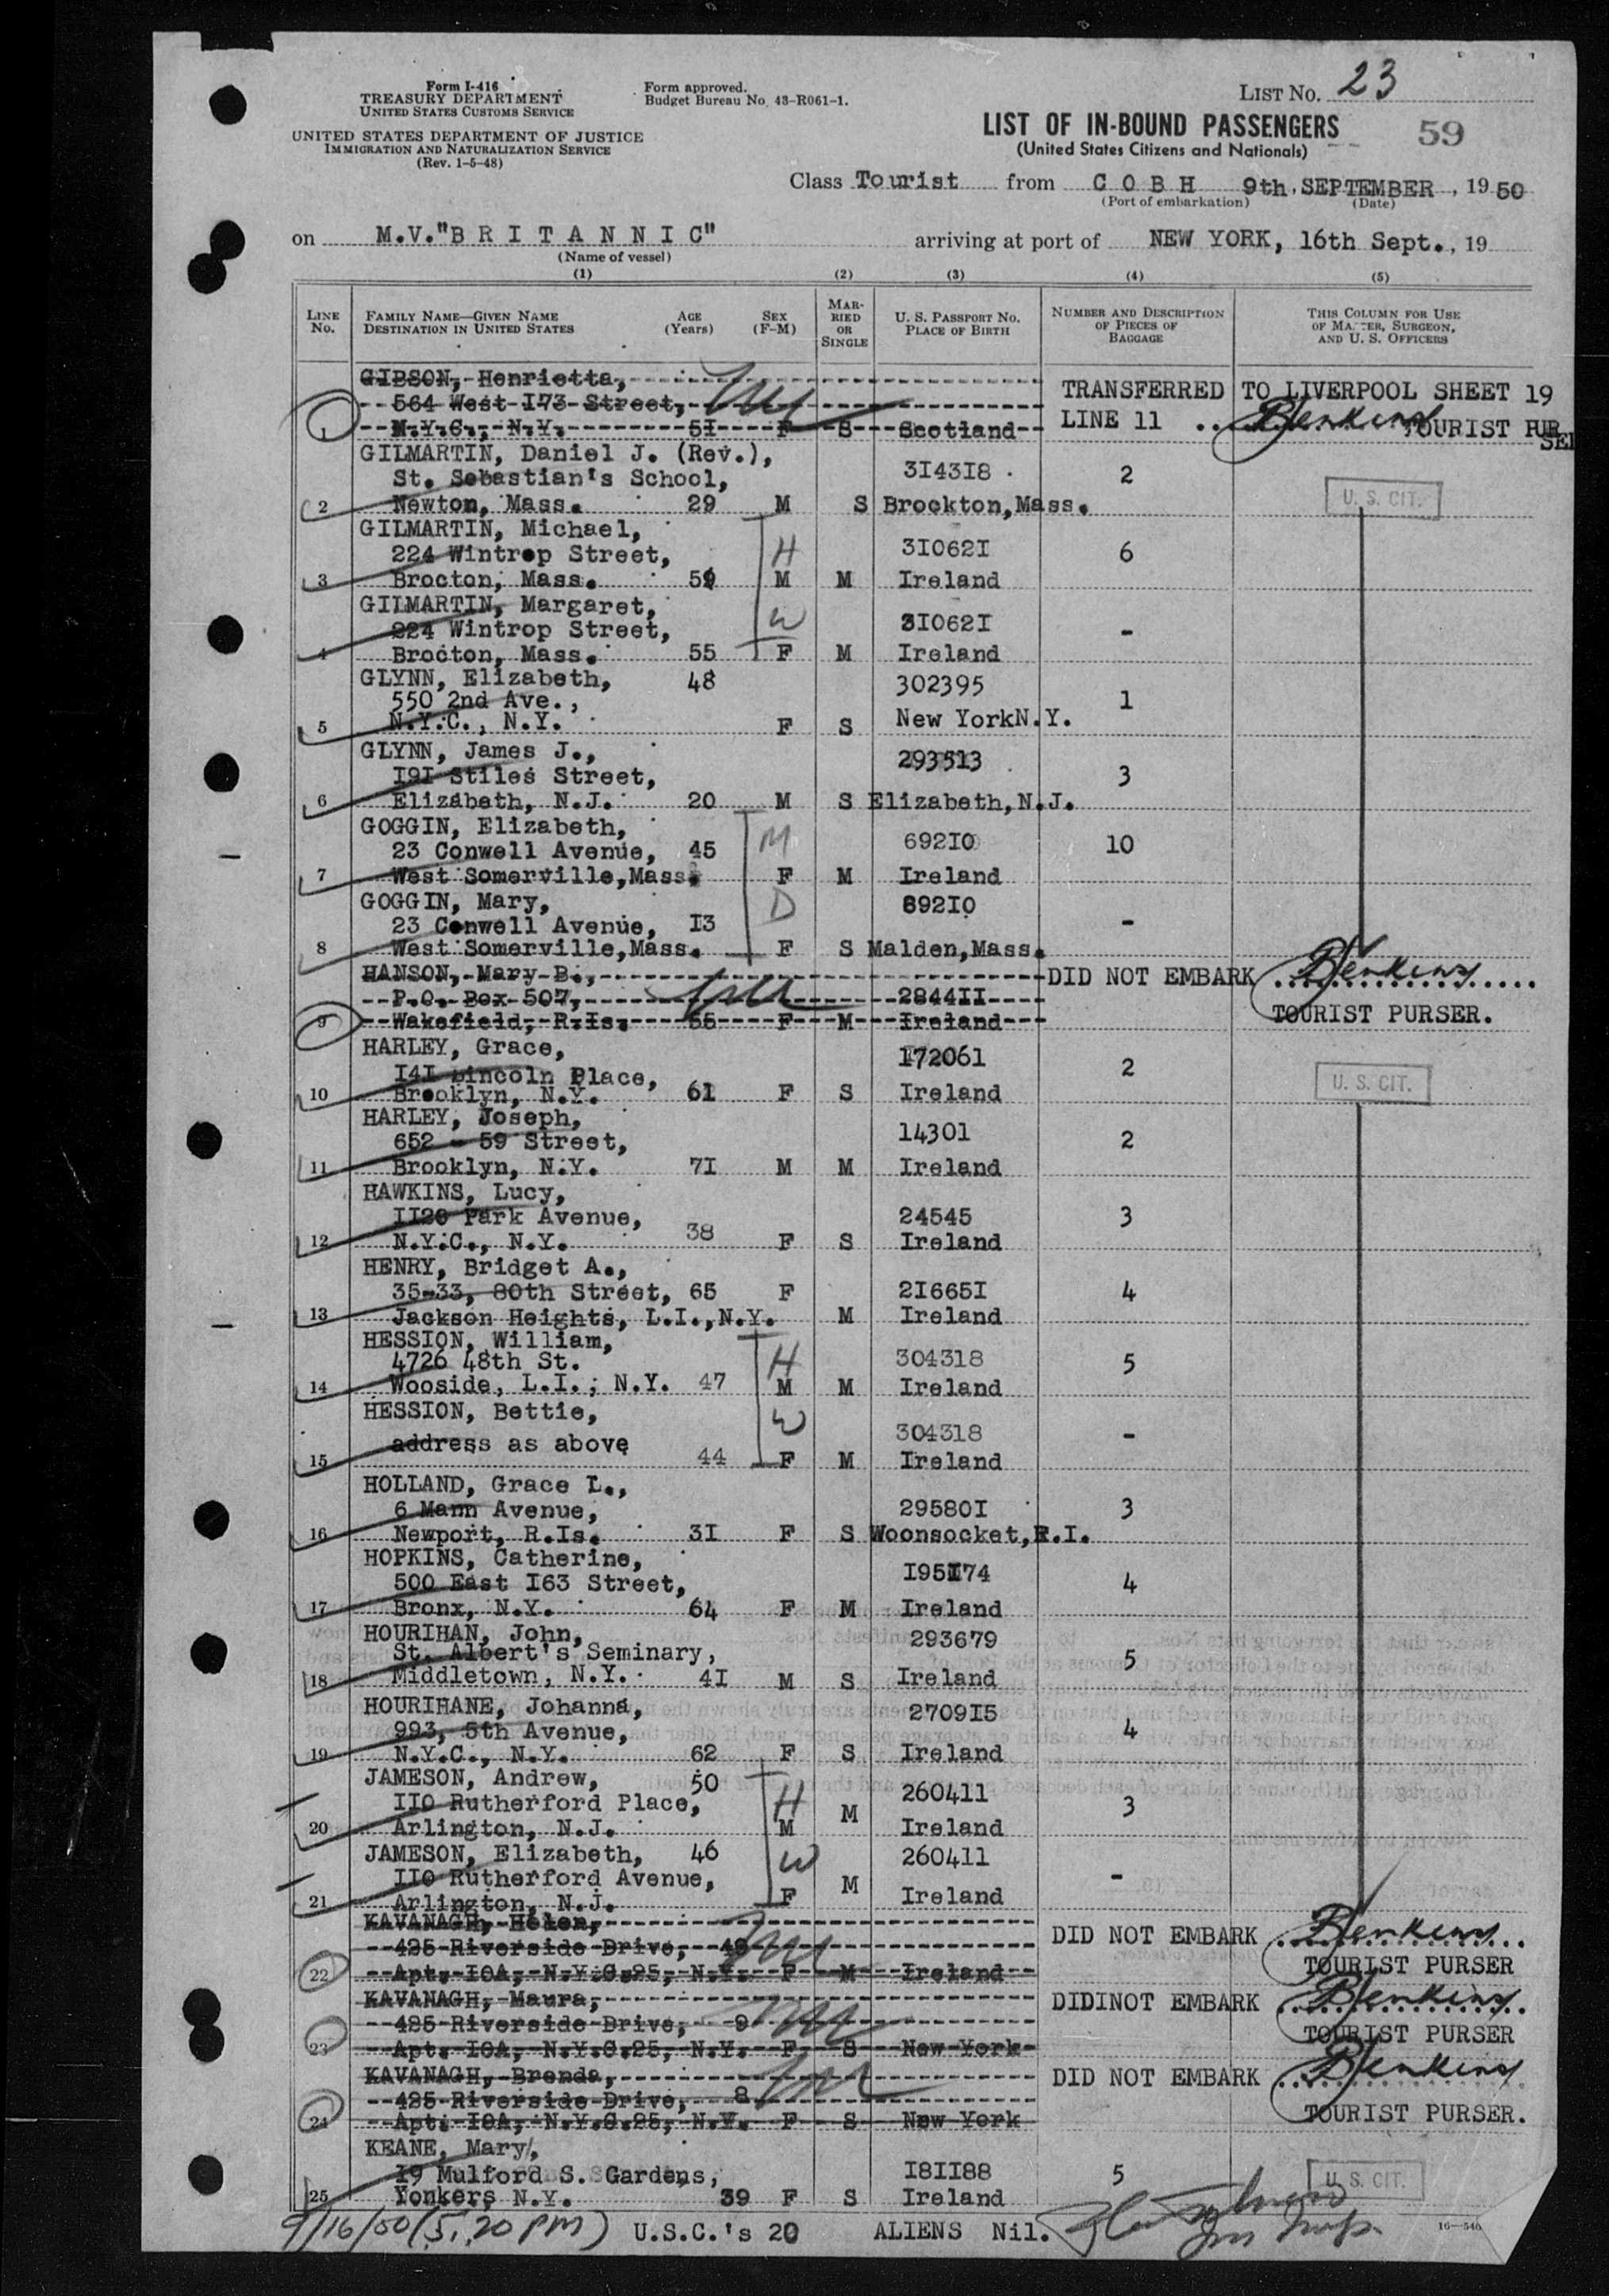 Form I-416
TREASURY DEPARTMENT
UNITED STATES CUSTOMS SERVICE
UNITED STATES DEPARTMENT OF JUSTICE
IMMIGRATION AND NATURALIZATION SERVICE
(Rev. 1-5-48)
Form approved.
Budget Bureau No. 43-R061-1.
LIST NO. 23
LIST OF IN-BOUND PASSENGERS 59
(United States Citizens and Nationals)
Class Tourist from C O B H 9th. SEPTEMBER, 19 50
(Port of embarkation) (Date)
on M.V."B R I T A N N I C" arriving at port of NEW YORK, 16th Sept., 19
(Name of vessel)
(1) (2) (3) (4) (5)
LINE No. FAMILY NAME—GIVEN NAME DESTINATION IN UNITED STATES AGE (Years) SEX (F-M) MARRIED OR SINGLE U. S. PASSPORT NO. PLACE OF BIRTH NUMBER AND DESCRIPTION OF PIECES OF BAGGAGE THIS COLUMN FOR USE OF MASTER, SURGEON, AND U. S. OFFICERS
GIBSON, Henrietta,
564 West I73 Street, TRANSFERRED TO LIVERPOOL SHEET 19
1 N.Y.C., N.Y. 5I F S Scotland LINE 11 .. BJenkins TOURIST PURSER
GILMARTIN, Daniel J. (Rev.),
St. Sebastian's School, 3I43I8 2
2 Newton, Mass. 29 M S Brockton,Mass. U. S. CIT.
GILMARTIN, Michael,
224 Wintrop Street, H 3I062I 6
3 Brocton, Mass. 59 M M Ireland
GILMARTIN, Margaret,
224 Wintrop Street, W 3I062I -
4 Brocton, Mass. 55 F M Ireland
GLYNN, Elizabeth, 48 302395
550 2nd Ave., 1
5 N.Y.C., N.Y. F S New YorkN.Y.
GLYNN, James J., 293513
I9I Stiles Street, 3
6 Elizabeth, N.J. 20 M S Elizabeth,N.J.
GOGGIN, Elizabeth, M
23 Conwell Avenue, 45 692I0 10
7 West Somerville,Mass. F M Ireland
GOGGIN, Mary, D 692I0
23 Conwell Avenue, I3 -
8 West Somerville,Mass. F S Malden,Mass.
HANSON, Mary B., DID NOT EMBARK BJenkins
P.O. Box 507, 2844II
9 Wakefield, R.Is. 55 F M Ireland TOURIST PURSER.
HARLEY, Grace, 172061
I4I Lincoln Place, 2 U. S. CIT.
10 Brooklyn, N.Y. 61 F S Ireland
HARLEY, Joseph,
652 - 59 Street, 14301 2
11 Brooklyn, N.Y. 7I M M Ireland
HAWKINS, Lucy,
II20 Park Avenue, 24545 3
12 N.Y.C., N.Y. 38 F S Ireland
HENRY, Bridget A.,
35-33, 80th Street, 65 F 2I665I 4
13 Jackson Heights, L.I.,N.Y. M Ireland
HESSION, William,
4726 48th St. H 304318 5
14 Wooside, L.I., N.Y. 47 M M Ireland
HESSION, Bettie, W
address as above 304318 -
15 44 F M Ireland
HOLLAND, Grace L.,
6 Mann Avenue, 29580I 3
16 Newport, R.Is. 3I F S Woonsocket,R.I.
HOPKINS, Catherine,
500 East I63 Street, I95I74 4
17 Bronx, N.Y. 64 F M Ireland
HOURIHAN, John, 293679
St. Albert's Seminary, 5
18 Middletown, N.Y. 4I M S Ireland
HOURIHANE, Johanna, 2709I5
993, 5th Avenue, 4
19 N.Y.C., N.Y. 62 F S Ireland
JAMESON, Andrew, 50 260411
II0 Rutherford Place, H M 3
20 Arlington, N.J. M Ireland
JAMESON, Elizabeth, 46 260411
II0 Rutherford Avenue, W M -
21 Arlington, N.J. F Ireland
KAVANAGH, Helen, DID NOT EMBARK BJenkins
425 Riverside Drive,
22 Apt. I0A, N.Y.C.25, N.Y. F M Ireland TOURIST PURSER
KAVANAGH, Maura, DIDINOT EMBARK BJenkins
425 Riverside Drive, 9
23 Apt. I0A, N.Y.C.25, N.Y. F S New York TOURIST PURSER
KAVANAGH, Brenda, DID NOT EMBARK BJenkins
425 Riverside Drive, 8
24 Apt. I0A, N.Y.C.25, N.Y. F S New York TOURIST PURSER.
KEANE, Mary,
I9 Mulford S. Gardens, I8II88 5 U. S. CIT.
25 Yonkers N.Y. 39 F S Ireland
9/16/50 (5.20 PM) U.S.C.'s 20 ALIENS Nil.
16—546